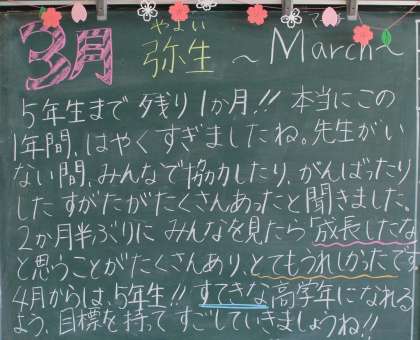 3月 弥生 ～March～
やよい マーチ
5年生まで 残り1か月!! 本当にこの
1年間、はやくすぎましたね。先生がい
ない間、みんなで協力したり、がんばったり
した すがたがたくさんあったと聞きました。
2か月半ぶりに みんなを見たら「成長したな」
と思うことがたくさんあり、とてもうれしかったです
4月からは、5年生!! すてきな高学年になれる
よう、目標を持って すごしていきましょうね!!